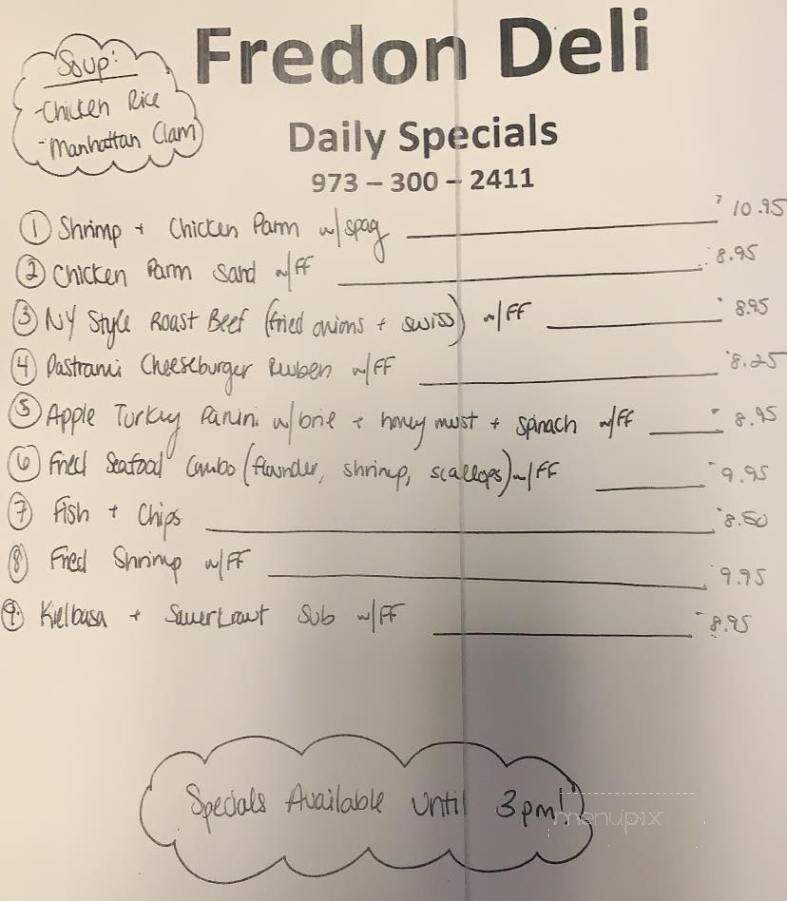 Fredon Deli
Soup:
-Chicken Rice
-Manhattan Clam
Daily Specials
973 – 300 – 2411
① Shrimp + Chicken Parm w/ spag 10.95
② Chicken Parm Sand w/FF 8.95
③ NY Style Roast Beef (fried onions + swiss) w/FF 8.95
④ Pastrami Cheeseburger Reuben w/FF 8.25
⑤ Apple Turkey Panini w/ brie + honey must + spinach w/FF 8.95
⑥ Fried Seafood Combo (flounder, shrimp, scallops) w/FF 9.95
⑦ Fish + Chips 8.50
⑧ Fried Shrimp w/FF 9.95
⑨ Kielbasa + Sauerkraut Sub w/FF 8.95
Specials Available Until 3pm!
menupix